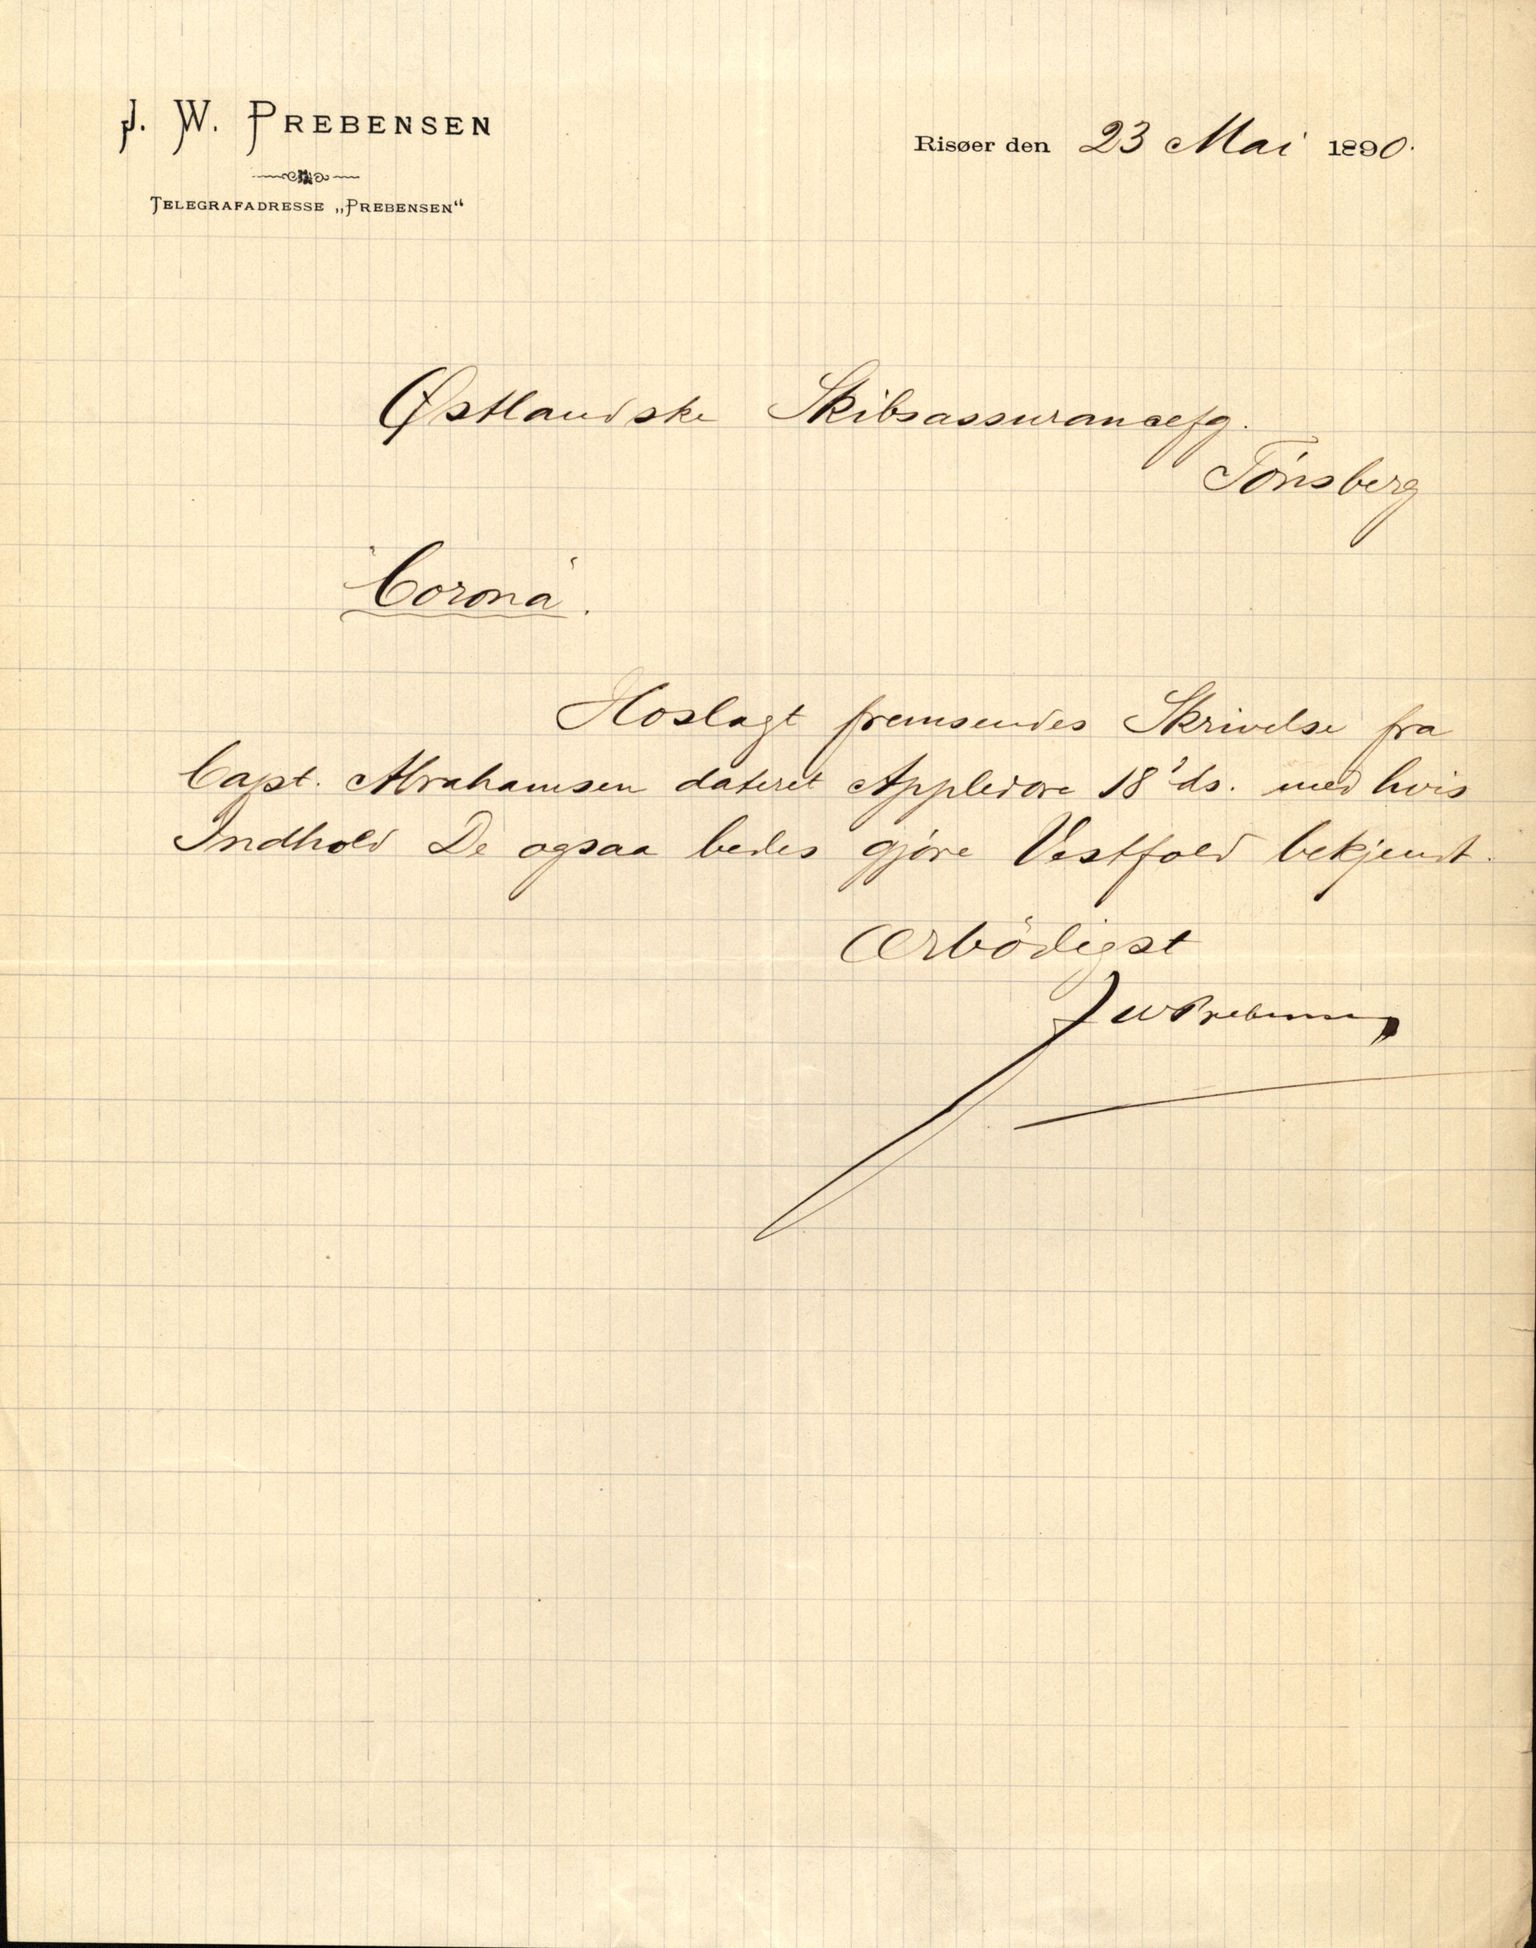 J. W. PREBENSEN
TELEGRAFADRESSE „PREBENSEN“
Risøer den 23 Mai 1890.
Østlandske Skibsassurancefg.
Tönsberg
"Corona".
Hoslagt fremsendes Skrivelse fra
Capt. Abrahamsen dateret Appledore 18' ds. med hvis
Indhold De ogsaa bedes gjøre Vestfold bekjendt.
Ærbödigst
JWPrebensen